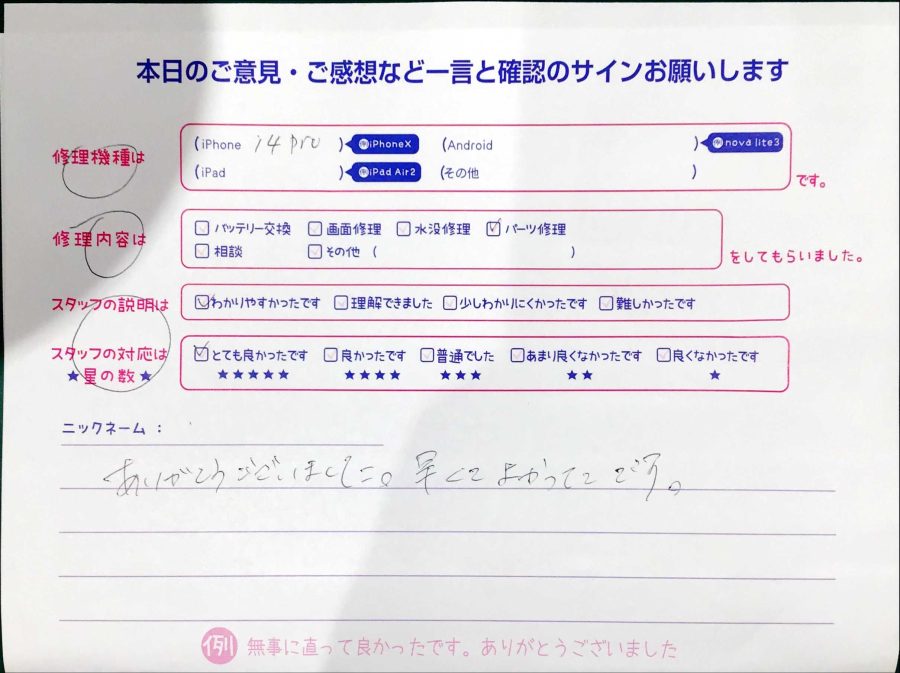 本日のご意見・ご感想など一言と確認のサインお願いします
修理機種は
(iPhone 14 pro ) 例iPhoneX (Android ) 例nova lite3
(iPad ) 例iPad Air2 (その他 )
です。
修理内容は
□バッテリー交換 □画面修理 □水没修理 ☑パーツ修理
□相談 □その他 ( )
をしてもらいました。
スタッフの説明は ☑わかりやすかったです □理解できました □少しわかりにくかったです □難しかったです
スタッフの対応は ☑とても良かったです □良かったです □普通でした □あまり良くなかったです □良くなかったです
★星の数★ ★★★★★ ★★★★ ★★★ ★★ ★
ニックネーム：
ありがとうございました。早くてよかったです。
例 無事に直って良かったです。ありがとうございました